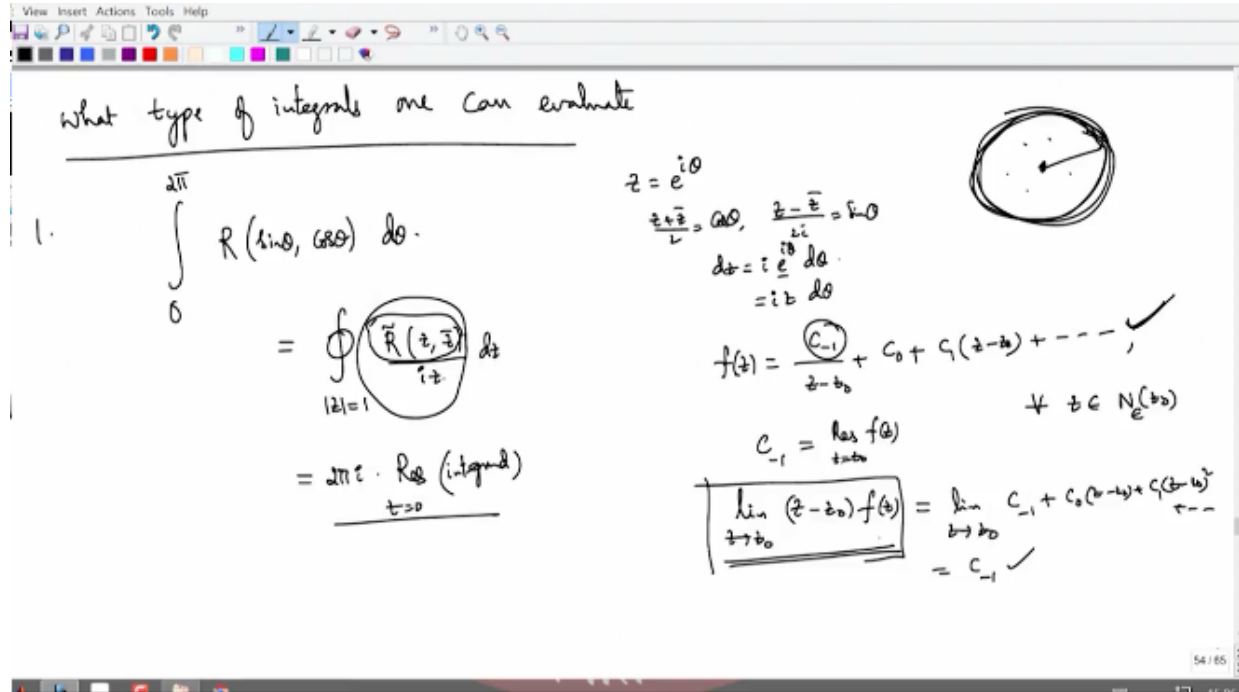 View Insert Actions Tools Help
What type of integrals one can evaluate
1. ∫₀^{2π} R(sinθ, cosθ) dθ.
= ∮_{|z|=1} R̃(z, z̄)/(iz) dz
= 2πi · Res_{z=0} (integrand)
z = e^{iθ}
(z+z̄)/2 = cosθ, (z-z̄)/2i = sinθ
dz = i e^{iθ} dθ.
= iz dθ
f(z) = C₋₁/(z-z₀) + C₀ + C₁(z-z₀) + ----,
∀ z ∈ N_ε(z₀)
C₋₁ = Res_{z=z₀} f(z)
lim_{z→z₀} (z-z₀) f(z) = lim_{z→z₀} C₋₁ + C₀(z-z₀) + C₁(z-z₀)² + ---
= C₋₁ ✓
54 / 65